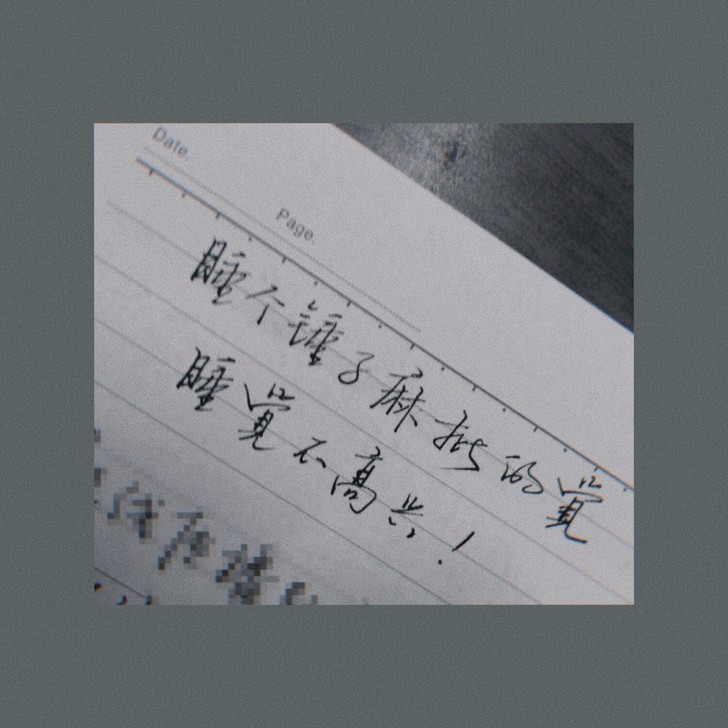 Date.
Page.
睡个锤子麻批的觉
睡觉不高兴!